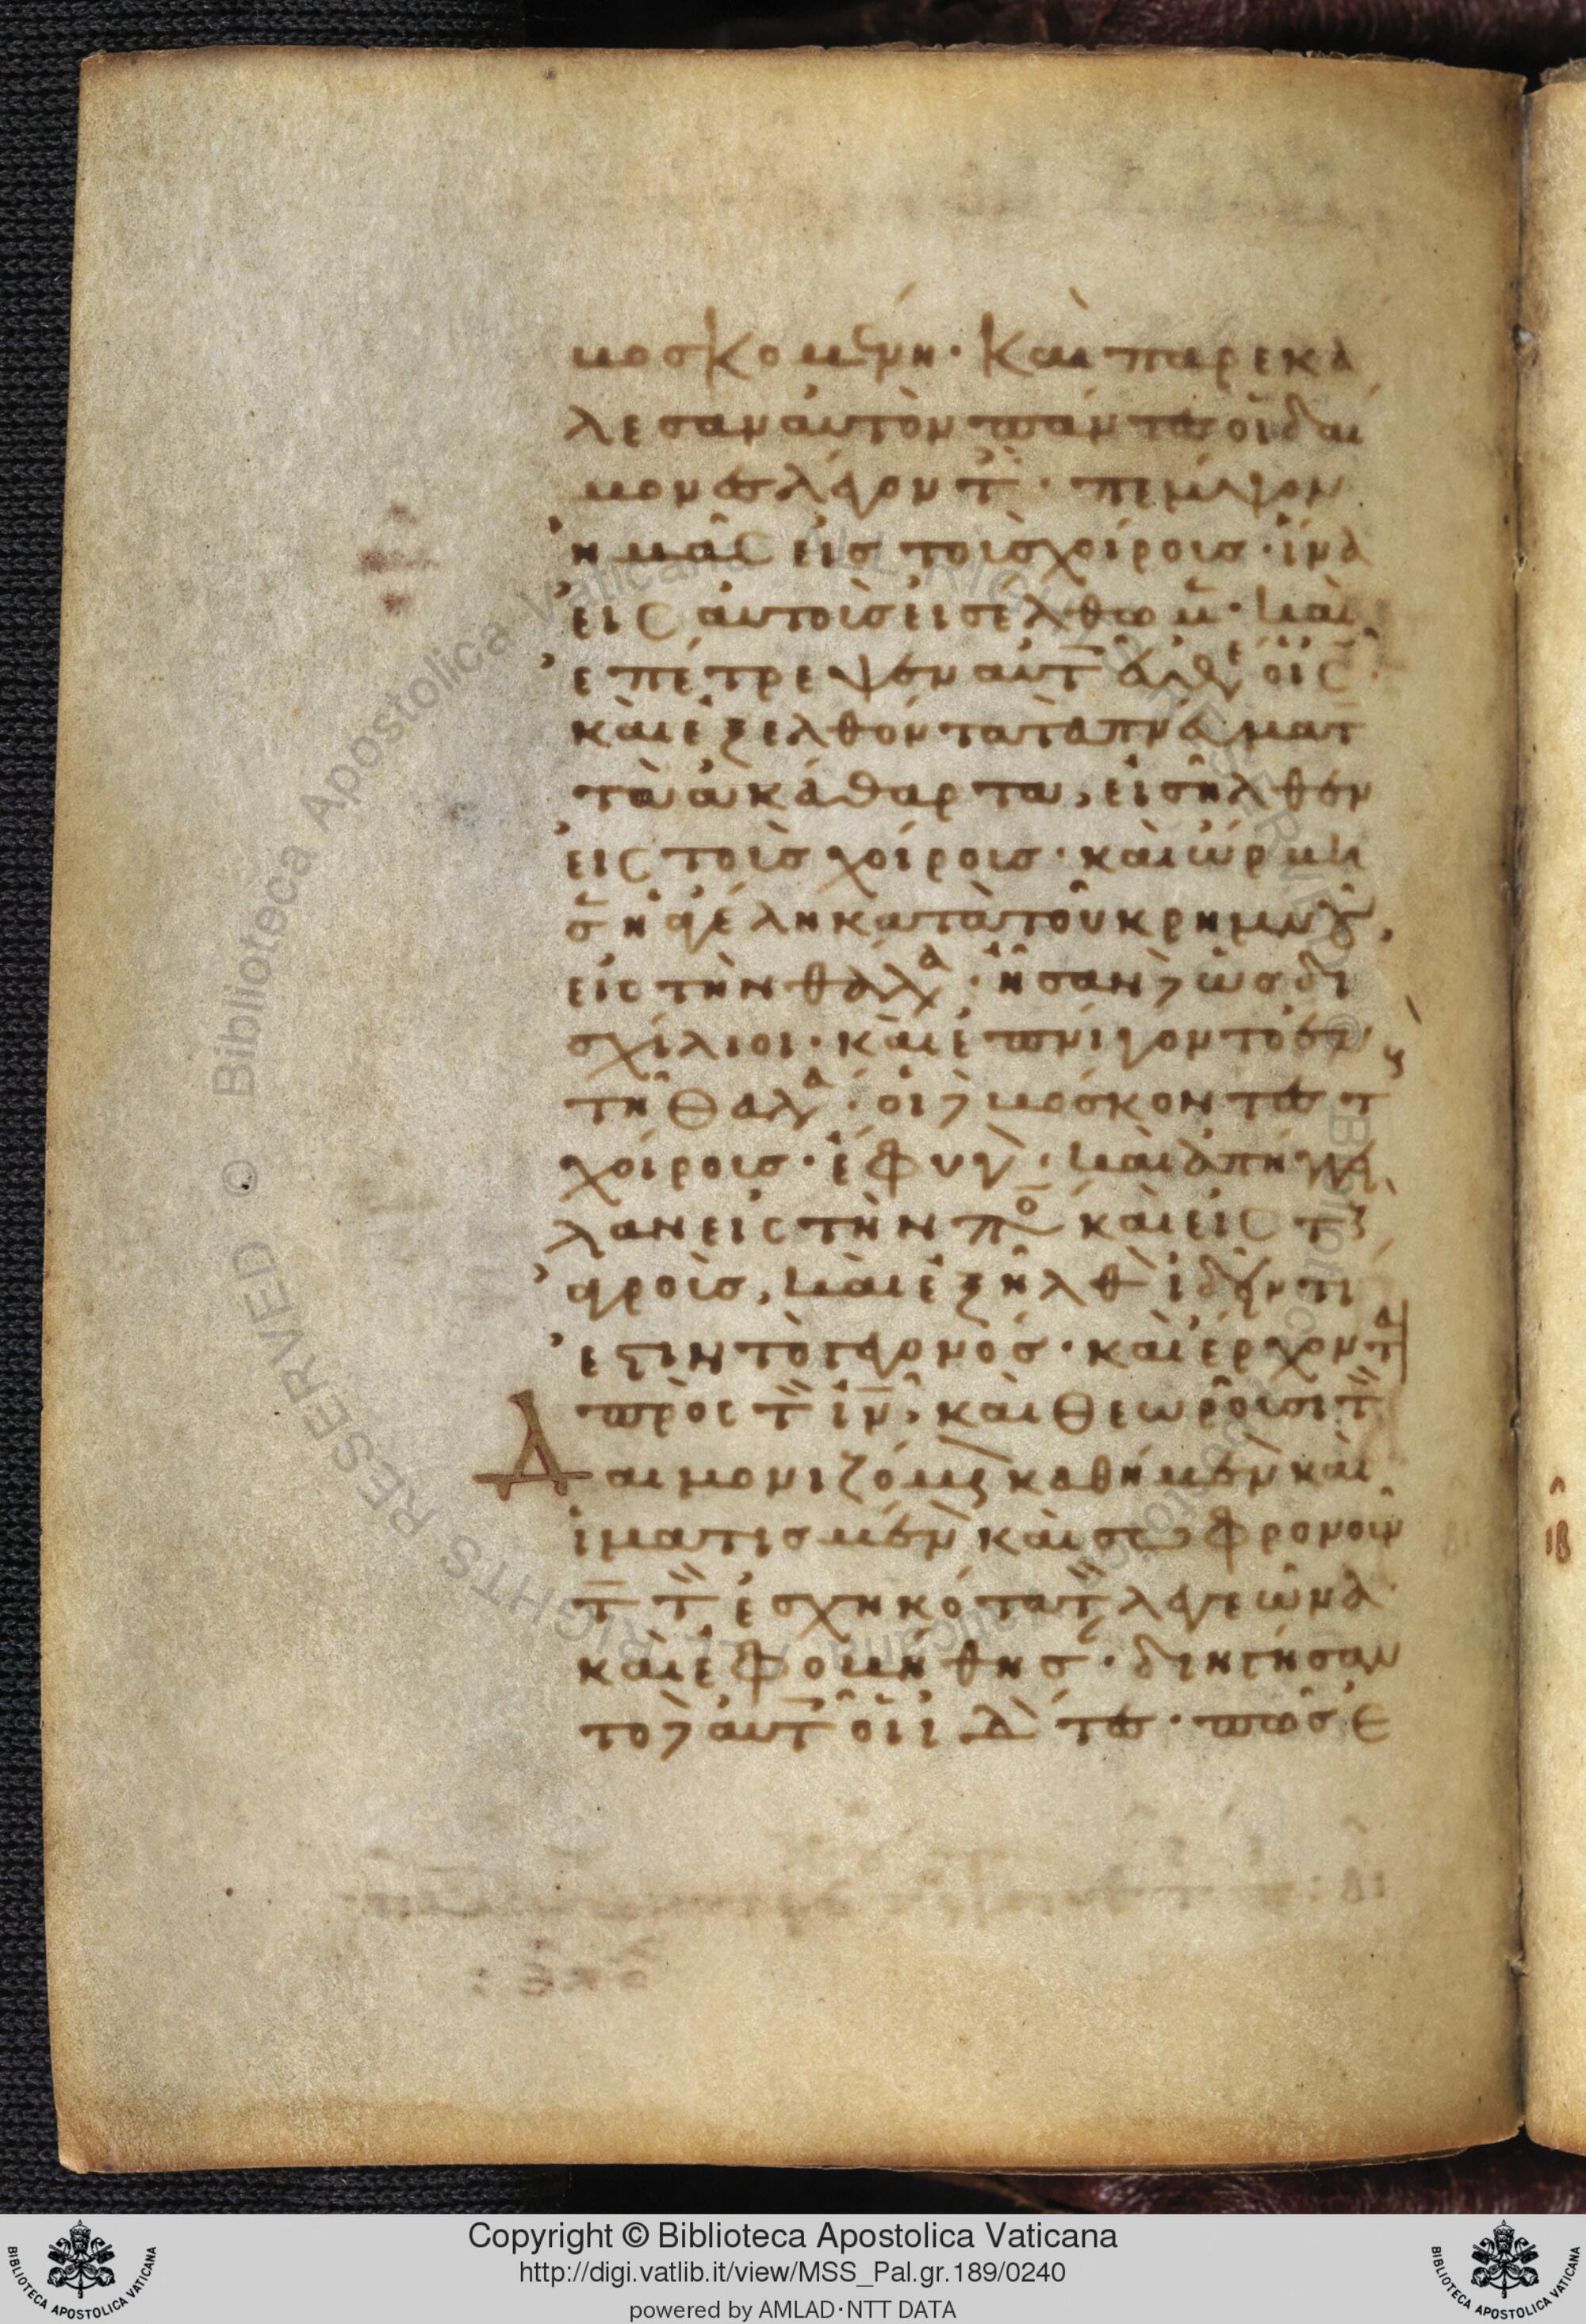 βοσκομένη· Καὶ παρεκά
λεσαν αὐτὸν πάντες οἱ δαί
μονες λέγοντ· πέμψον
ἡμᾶς εἰς τοὺς χοίρους· ἵνα
εἰς αὐτοὺς εἰσέλθωμ· καὶ
ἐπέτρεψεν αὐτ εὐθε ὁ ις
καὶ ἐξελθόντα τὰ πνάματ
τὰ ἀκάθαρτα, εἰσῆλθεν
εἰς τοὺς χοίρους· καὶ ὥρμη
σ ἡ ἀγέλη κατὰ τοῦ κρημνοῦ,
εἰς τὴν θαλα· ἦσαν δ ὡς δι
σχίλιοι· καὶ ἐπνίγοντο ἐν
τῇ θαλα· οἱ δ βόσκοντες τ
χοίρους· ἔφυγ· καὶ ἀπήγγει
λαν εἰς τὴν πο καὶ εἰς τ
ἀγρούς, καὶ ἐξῆλθ ἰδεῖν τί
ἐστιν τὸ γεγονός· καὶ ἔρχοντα
πρὸς τ ιν, καὶ θεωροῦσι τ
Δαιμονιζόμε καθήμεν καὶ
ἱματισμέν καὶ σωφρονοῦν
τ τ ἐσχηκότα τ λεγεῶνα
καὶ ἐφοβήθησ· διηγήσαν
το δ αὐτ οἱ ἰδ τες· πῶς ἐ
Copyright © Biblioteca Apostolica Vaticana
http://digi.vatlib.it/view/MSS_Pal.gr.189/0240
powered by AMLAD·NTT DATA
BIBLIOTECA APOSTOLICA VATICANA
BIBLIOTECA APOSTOLICA VATICANA